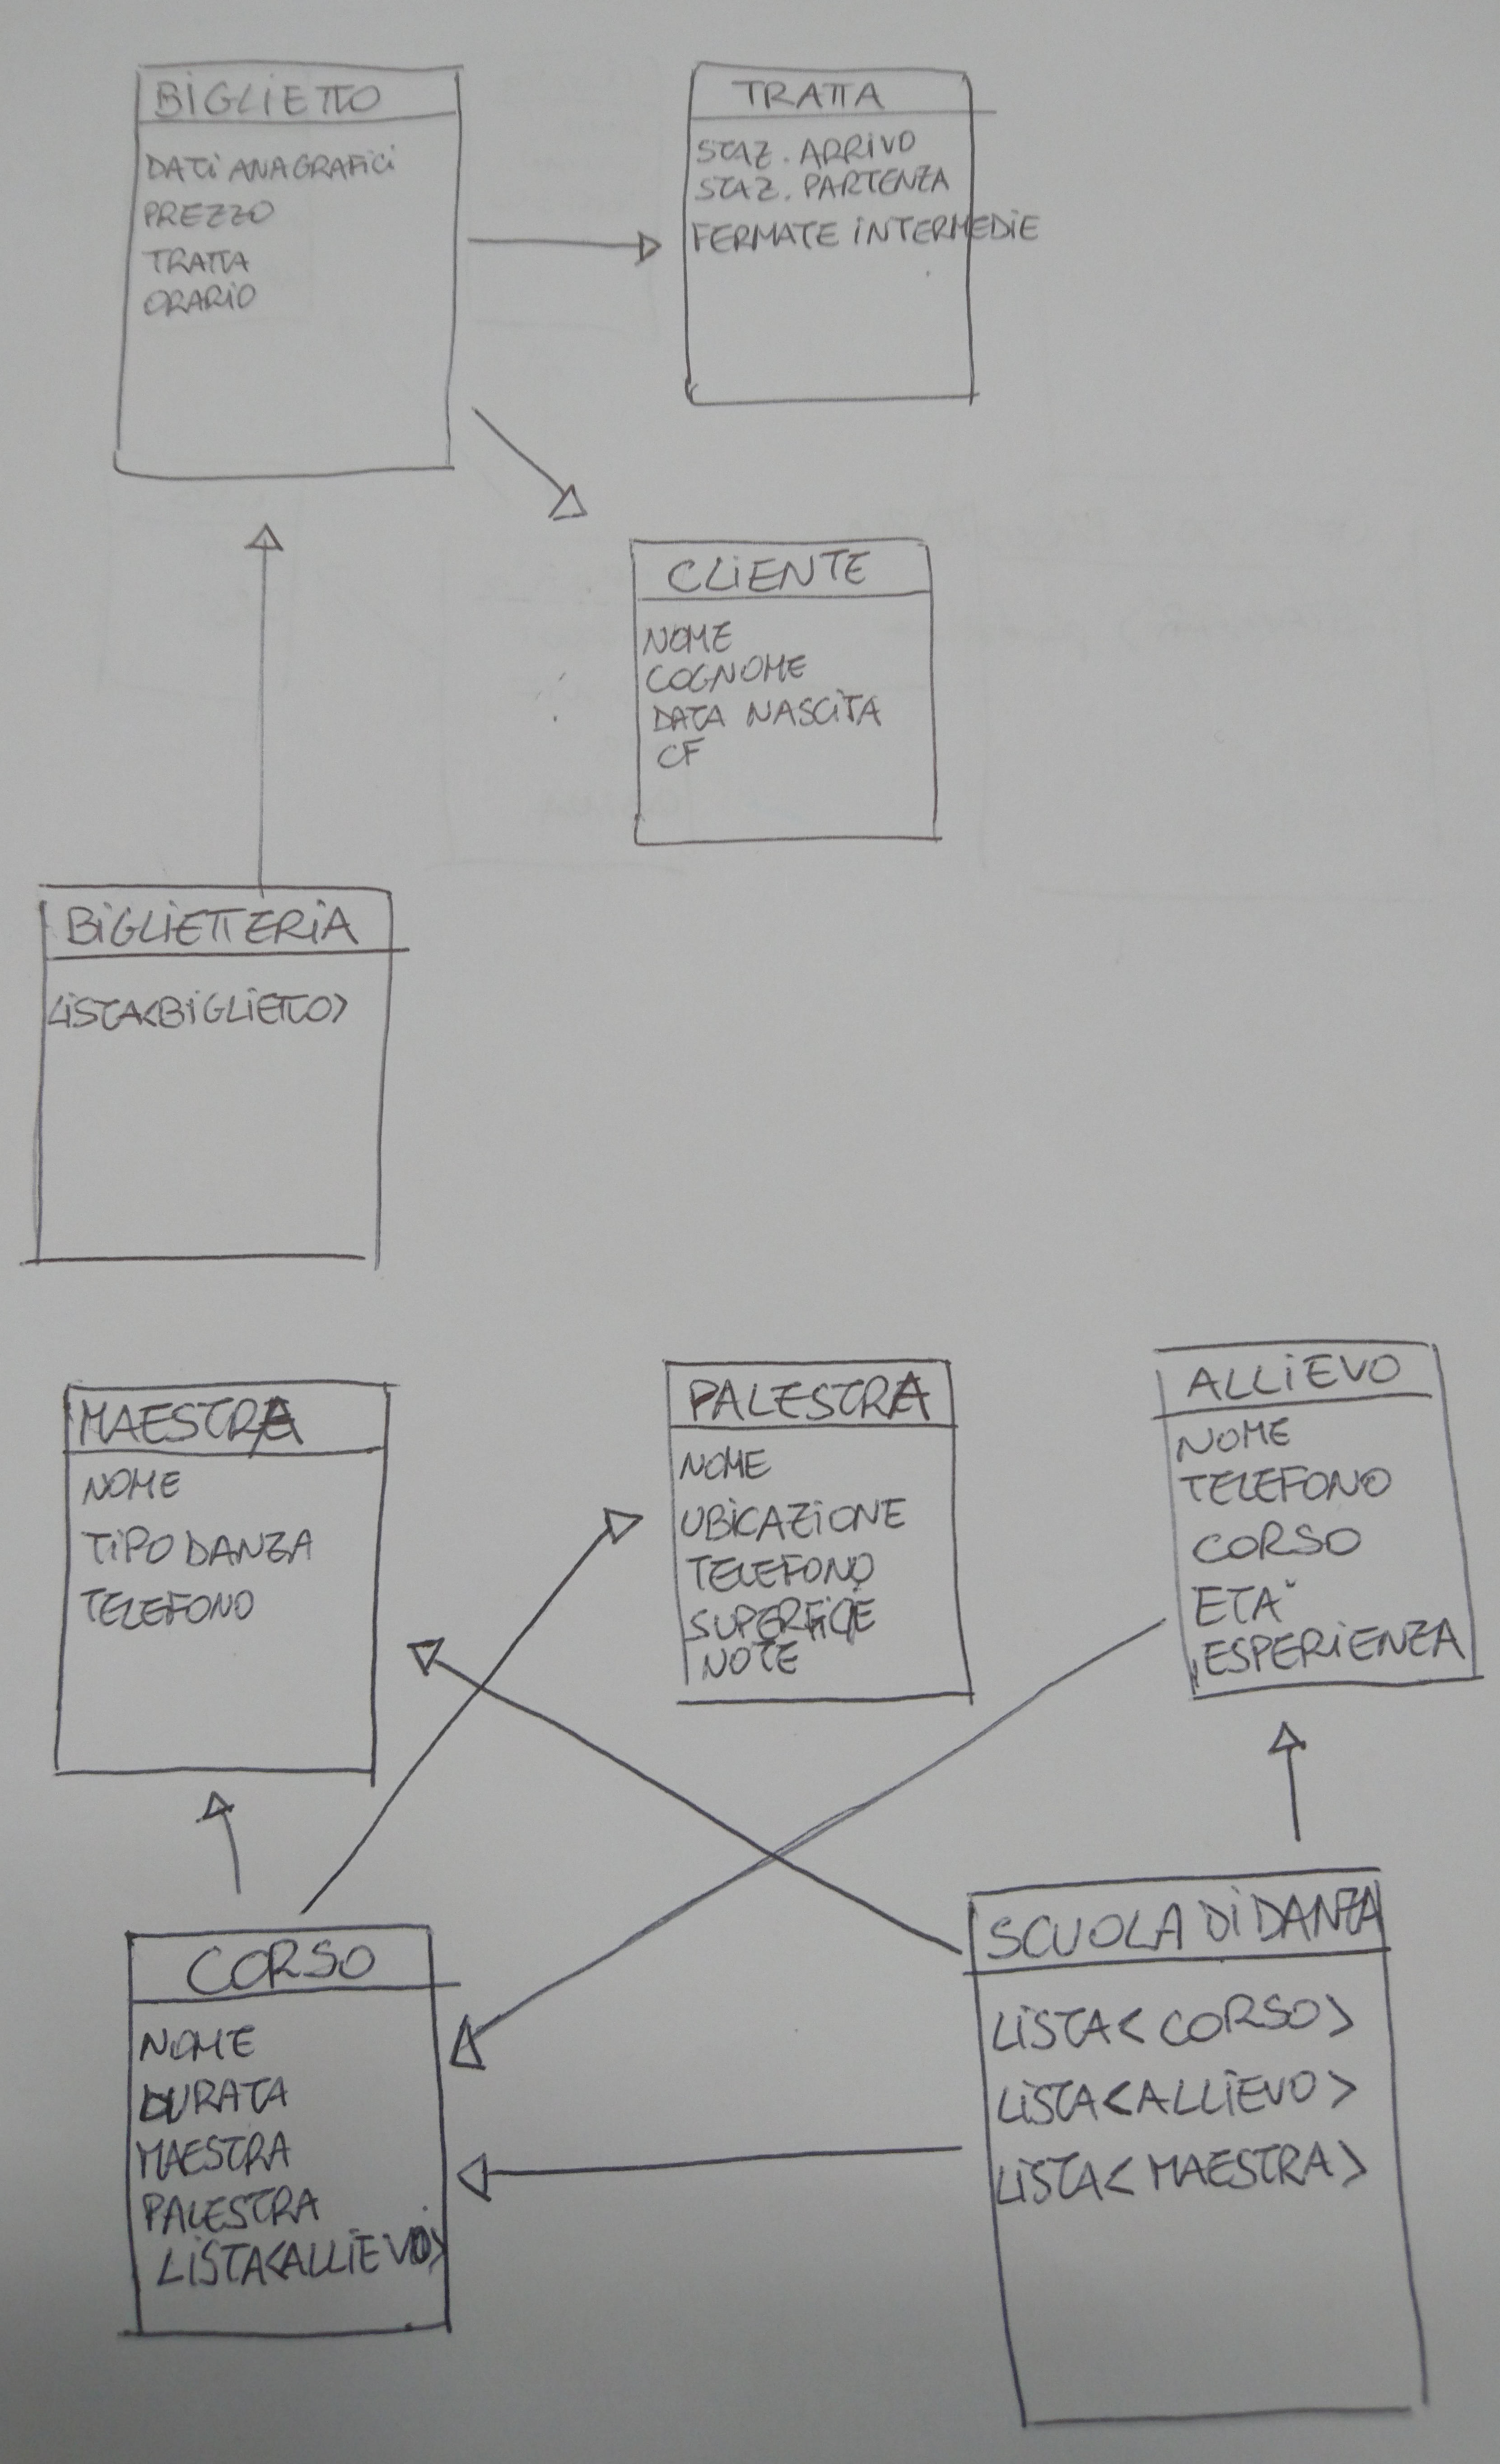 BIGLIETTO
DATI ANAGRAFICI
PREZZO
TRATTA
ORARIO
TRATTA
STAZ. ARRIVO
STAZ. PARTENZA
FERMATE INTERMEDIE
CLIENTE
NOME
COGNOME
DATA NASCITA
CF
BIGLIETTERIA
LISTA<BIGLIETTO>
MAESTRA
NOME
TIPO DANZA
TELEFONO
PALESTRA
NOME
UBICAZIONE
TELEFONO
SUPERFICIE
NOTE
ALLIEVO
NOME
TELEFONO
CORSO
ETA'
ESPERIENZA
CORSO
NOME
DURATA
MAESTRA
PALESTRA
LISTA<ALLIEVO>
SCUOLA DI DANZA
LISTA< CORSO>
LISTA<ALLIEVO>
LISTA< MAESTRA>